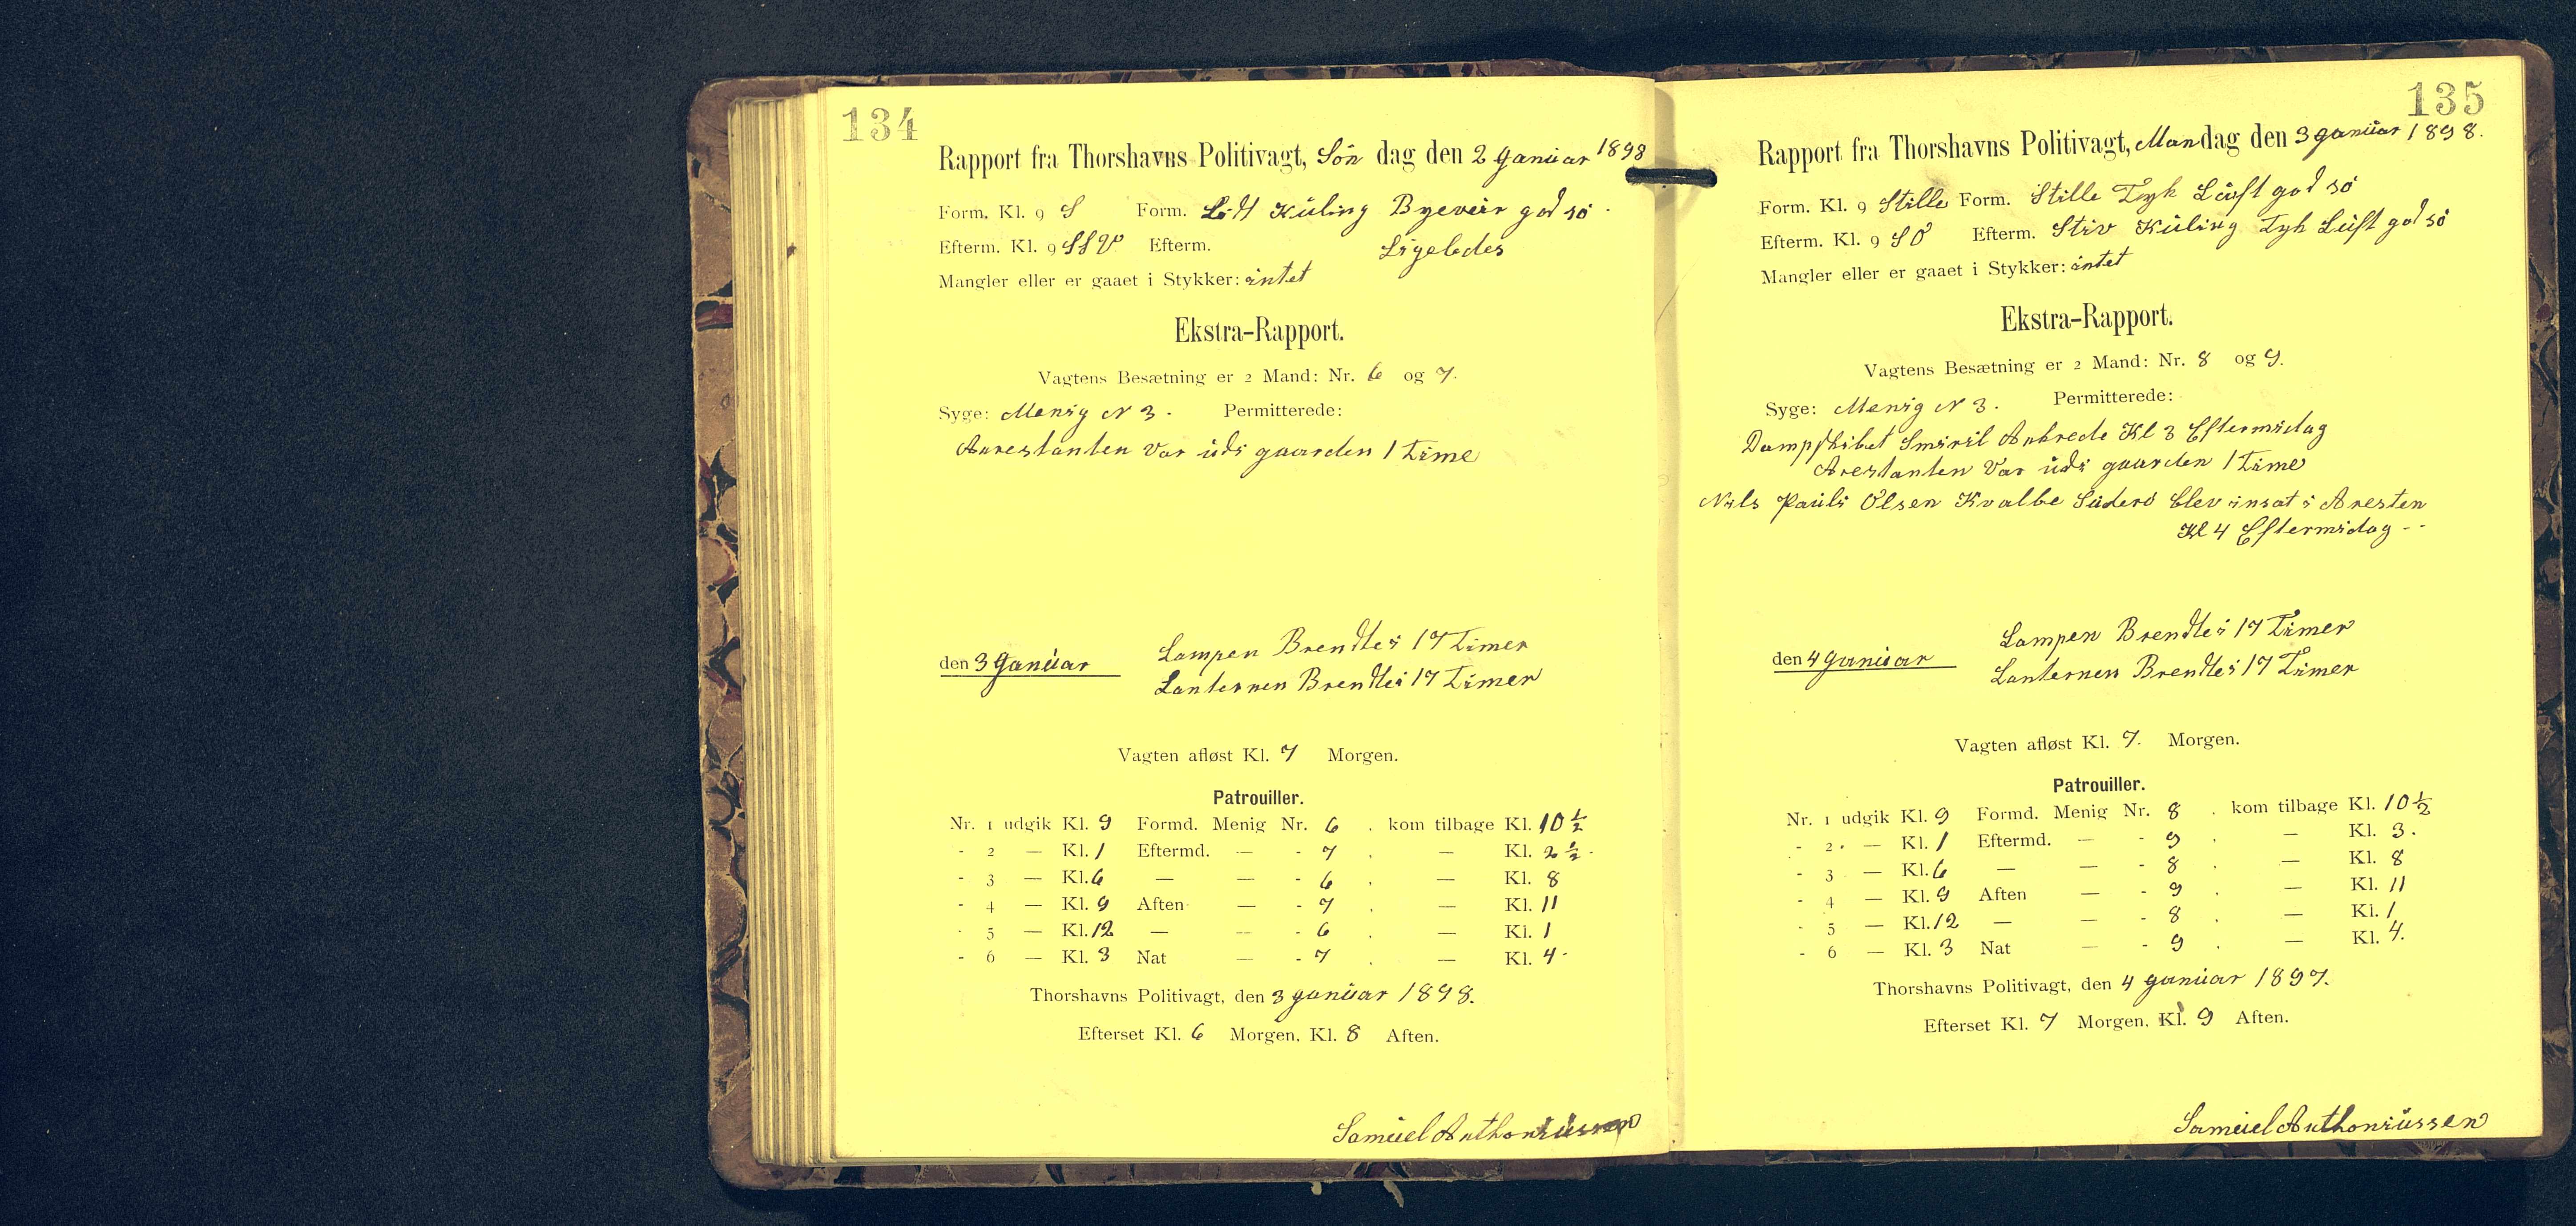 134
Rapport fra Thorshavns Politivagt, Søn dag den 2 Januar 1898
Form. Kl. 9 S Form. Lidt Kuling Byeveir god sø.
Efterm. Kl. 9 SSV Efterm. Ligeledes
Mangler eller er gaaet i Stykker: intet
Ekstra-Rapport.
Vagtens Besætning er 2 Mand: Nr. 6 og 7.
Syge: Menig N 3. Permitterede:
Anrestanten Var udi gaarden 1 Time
Lampen Brendte i 17 Timer
den 3 Januar
Lanternen Brendte i 17 Timer
Vagten afløst Kl. 7 Morgen.
Patrouiller.
Nr. 1 udgik Kl. 9 Formd. Menig Nr. 6 . kom tilbage Kl. 10 ½
- 2 — Kl. 1 Eftermd. — - 7 . — Kl. 2 ½.
- 3 — Kl. 6 — — - 6 . — Kl. 8
- 4 — Kl. 9 Aften — - 7 . — Kl. 11
- 5 — Kl. 12 — — - 6 . — Kl. 1
- 6 — Kl. 3 Nat — - 7 . — Kl. 4.
Thorshavns Politivagt, den 3 Januar 1898.
Efterset Kl. 6 Morgen, Kl. 8 Aften.
Samuel Anthoniussen
135
Rapport fra Thorshavns Politivagt, Mandag den 3 Januar 1898.
Form. Kl. 9 Stille Form. Stille Tyk Luft god sø
Efterm. Kl. 9 SO Efterm. Stiv Kuling Tyk Luft god sø
Mangler eller er gaaet i Stykker: intet
Ekstra-Rapport.
Vagtens Besætning er 2 Mand: Nr. 8 og 9.
Syge: Menig N 3. Permitterede:
Dampskibet Smiril Ankrede Kl 3 Eftermidag
Arestanten Var udi gaarden 1 Time
Nils Pauli Olsen Kvalbe Suderø blev insat i Aresten
Kl 4 Eftermidag - -
Lampen Brendte i 17 Timer
den 4 Januar
Lanternen Brendte i 17 Timer
Vagten afløst Kl. 7. Morgen.
Patrouiller.
Nr. 1 udgik Kl. 9 Formd. Menig Nr. 8 . kom tilbage Kl. 10 ½
- 2. — Kl. 1 Eftermd. — - 9 . — Kl. 3.
- 3 — Kl. 6 — — - 8 . — Kl. 8
- 4 — Kl. 9 Aften — - 9 . — Kl. 11
- 5 — Kl. 12 — — - 8 . — Kl. 1
- 6 — Kl. 3 Nat — - 9 . — Kl. 4.
Thorshavns Politivagt, den 4 Januar 1897.
Efterset Kl. 7 Morgen, Kl. 9 Aften.
Samuel Anthoniussen